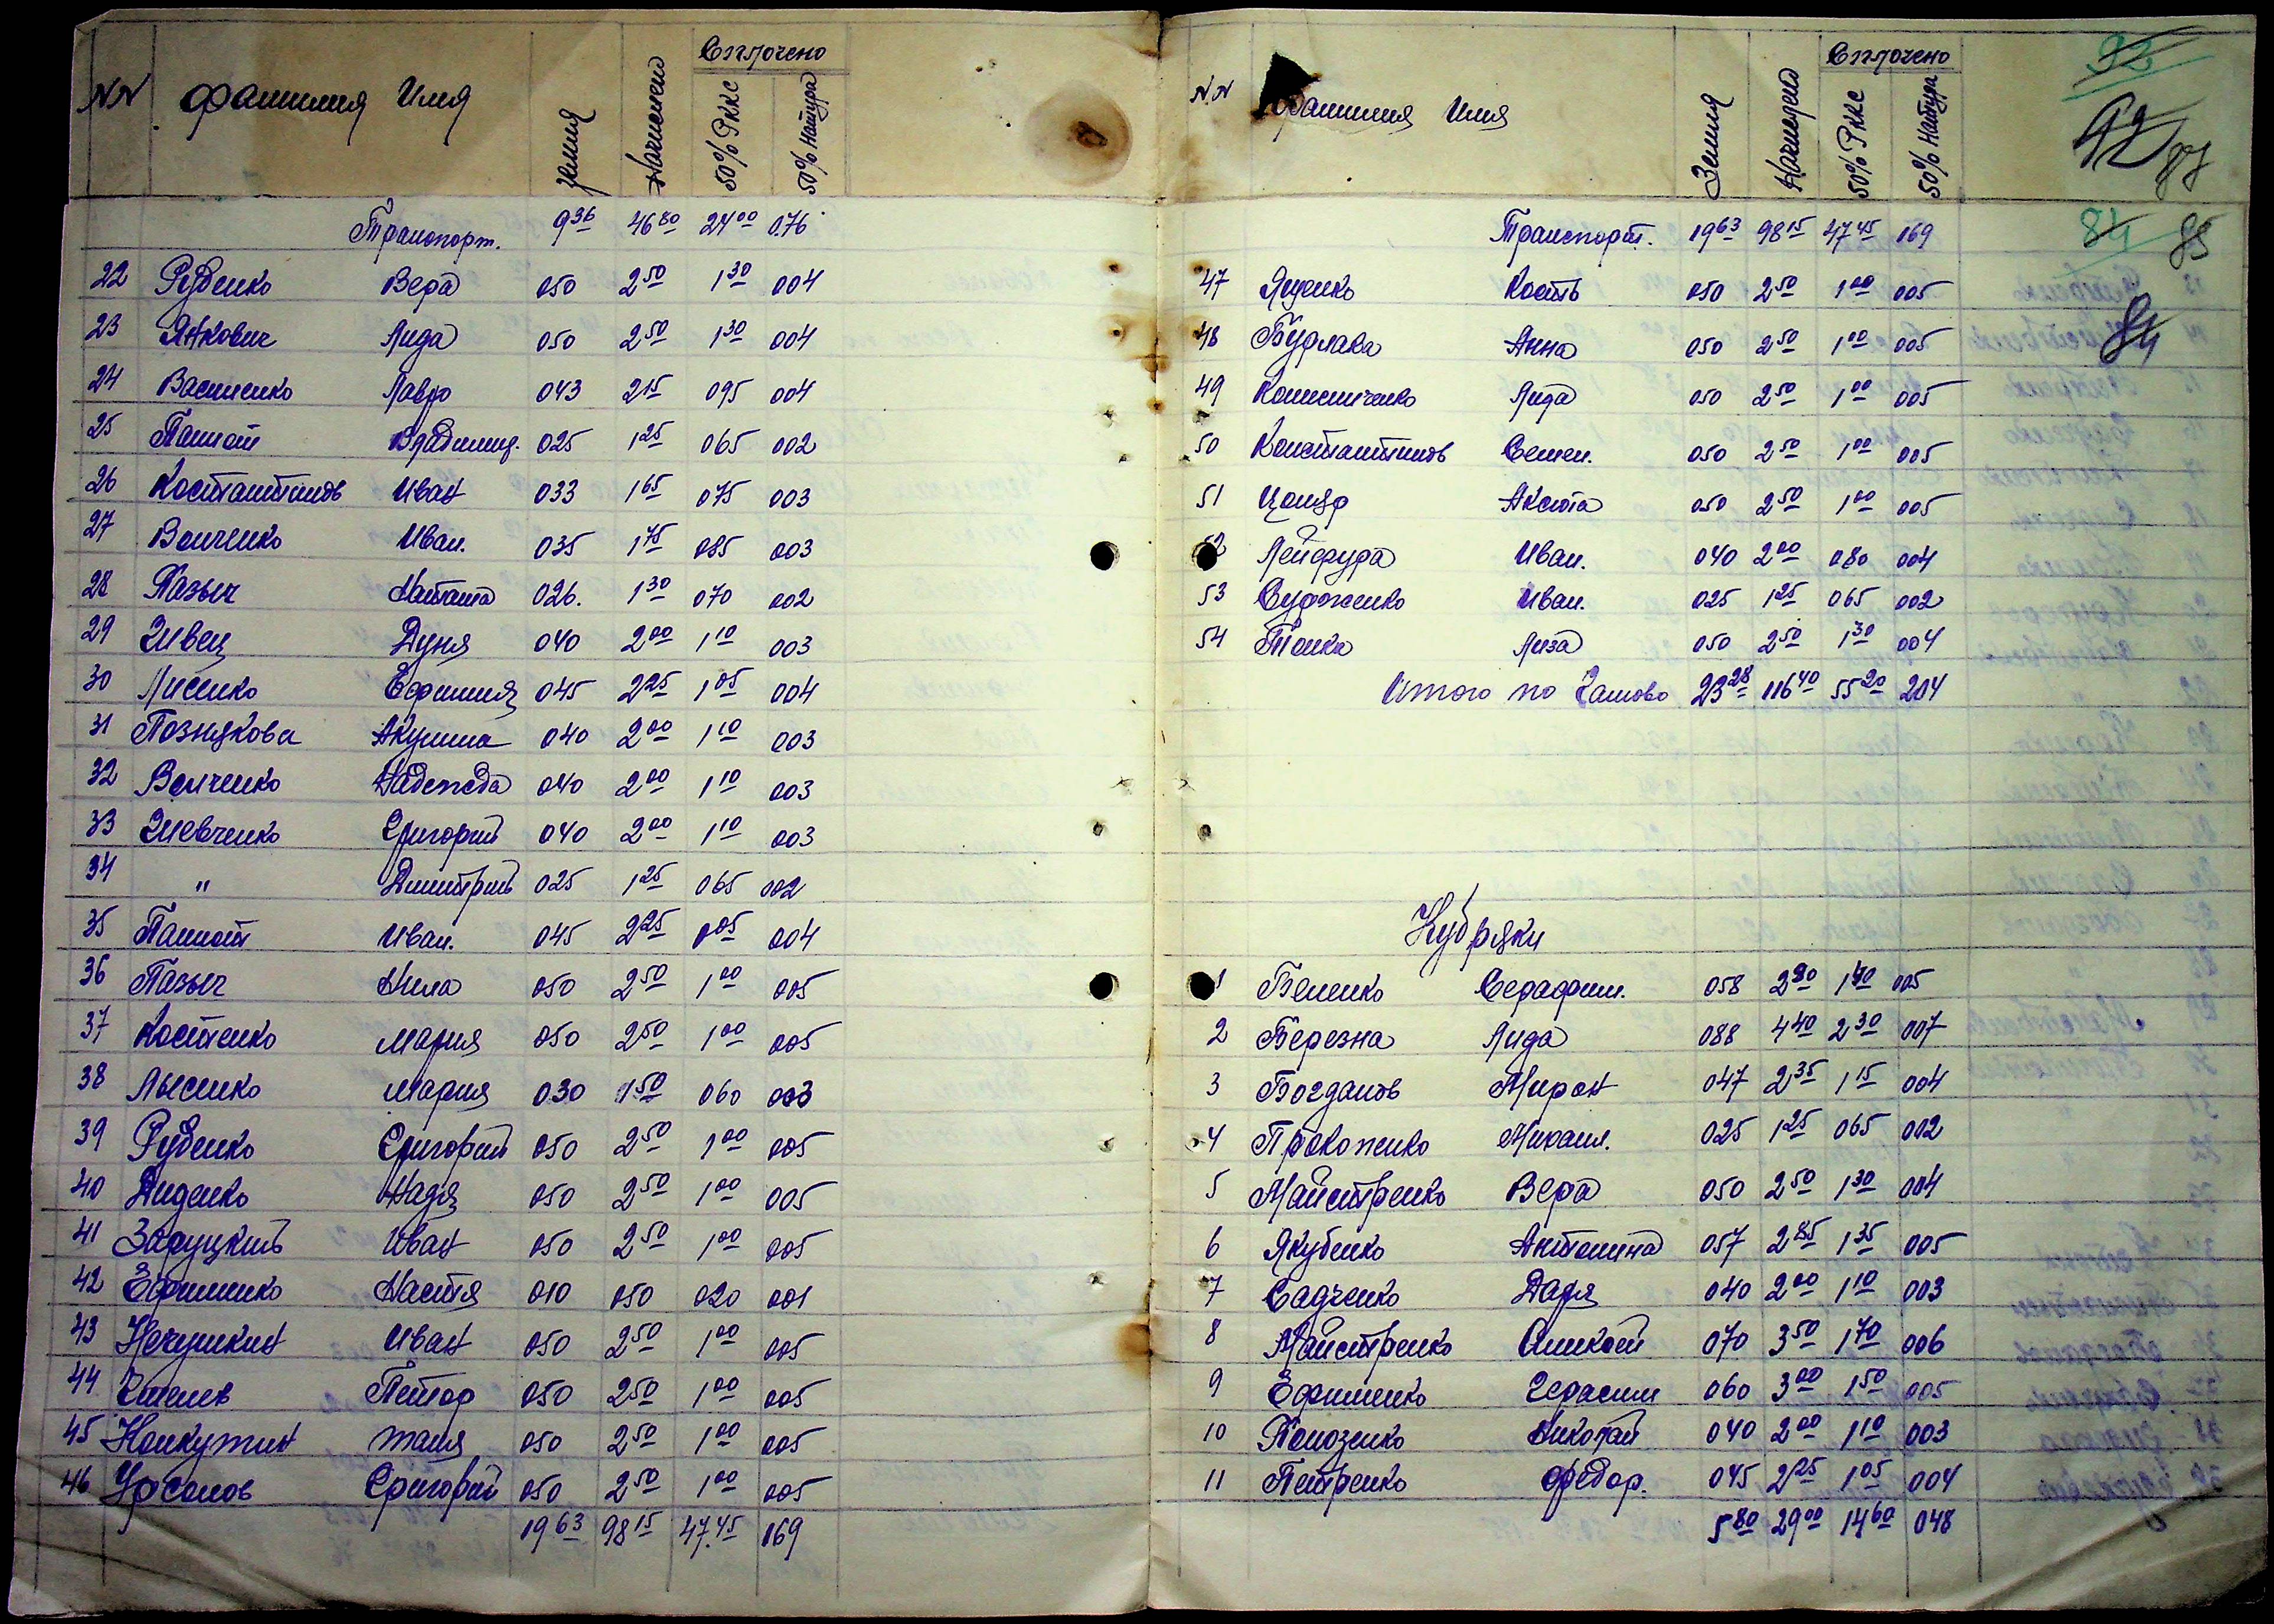 NN Фамилия Имя Земля Начислено Оплочено 50% Рккс 50% Натура
Транспорт. 9 36 46 80 24 00 0.76
22 Руденко Вера 050 2 50 1 30 004
23 Янкович Лида 050 2 50 1 30 004
24 Василенко Лавро 043 2 15 095 004
25 Папкой Владимир. 025 1 25 065 002
26 Костантинов Иван 033 1 65 075 003
27 Волченко Иван. 035 1 75 085 003
28 Пазыч Наташа 026. 1 30 070 002
29 Швец Дуня 040 2 00 1 10 003
30 Лисенко Ефимия 045 2 25 1 05 004
31 Познякова Акулина 040 2 00 1 10 003
32 Волченко Надежда 040 2 00 1 10 003
33 Шевченко Григорий 040 2 00 1 10 003
34 " Димитрий 025 1 25 065 002
35 Иван. 045 2 25 004
36 Пазыч Нила 050 2 50 1 00 005
37 Костенко Мария 050 2 50 1 00 005
38 Лысенко Мария 030 1 50 060 003
39 Руденко Григорий 050 2 50 1 00 005
40 Диденко Надя 050 2 50 1 00 005
41 Заруцкий Иван 050 2 50 1 00 005
42 Ефименко Настя 010 050 020 001
43 Нечушкин Иван 050 2 50 1 00 005
44 Петор 050 2 50 1 00 005
45 Таня 050 2 50 1 00 005
46 Урсолов Григорий 050 2 50 1 00 005
19 63 98 15 47.45 169
N.N Фамилия Имя Земля Начислено Оплочено 50% Рккс 50% Натура
92
92
87
Транспорт. 19 63 98 15 47 45 169
84 85
47 Яценко Кость 050 2 50 1 00 005
84
48 Бурлака Анна 050 2 50 1 00 005
49 Лида 050 2 50 1 00 005
50 Константинов Семен. 050 2 50 1 00 005
51 Аксюта 050 2 50 1 00 005
52 Иван. 040 2 00 080 004
53 Иван. 025 1 25 065 002
54 Лиза 050 2 50 1 30 004
Итого по 23 28 116 40 55 20 204
Кудряки
1 Беленко Серафим. 058 2 90 1 40 005
2 Березна Лида 088 4 40 2 30 007
3 Богданов Мирон 047 2 35 1 15 004
4 Михаил. 025 1 25 065 002
5 Майстренко Вера 050 2 50 1 30 004
6 Якубенко Антонина 057 2 85 1 35 005
7 Садченко 040 2 00 1 10 003
8 Майстренко 070 3 50 1 70 006
9 Ефименко Герасим 060 3 00 1 50 005
10 Николай 040 2 00 1 10 003
11 Петренко Федор. 045 2 25 1 05 004
5 80 29 00 14 60 048